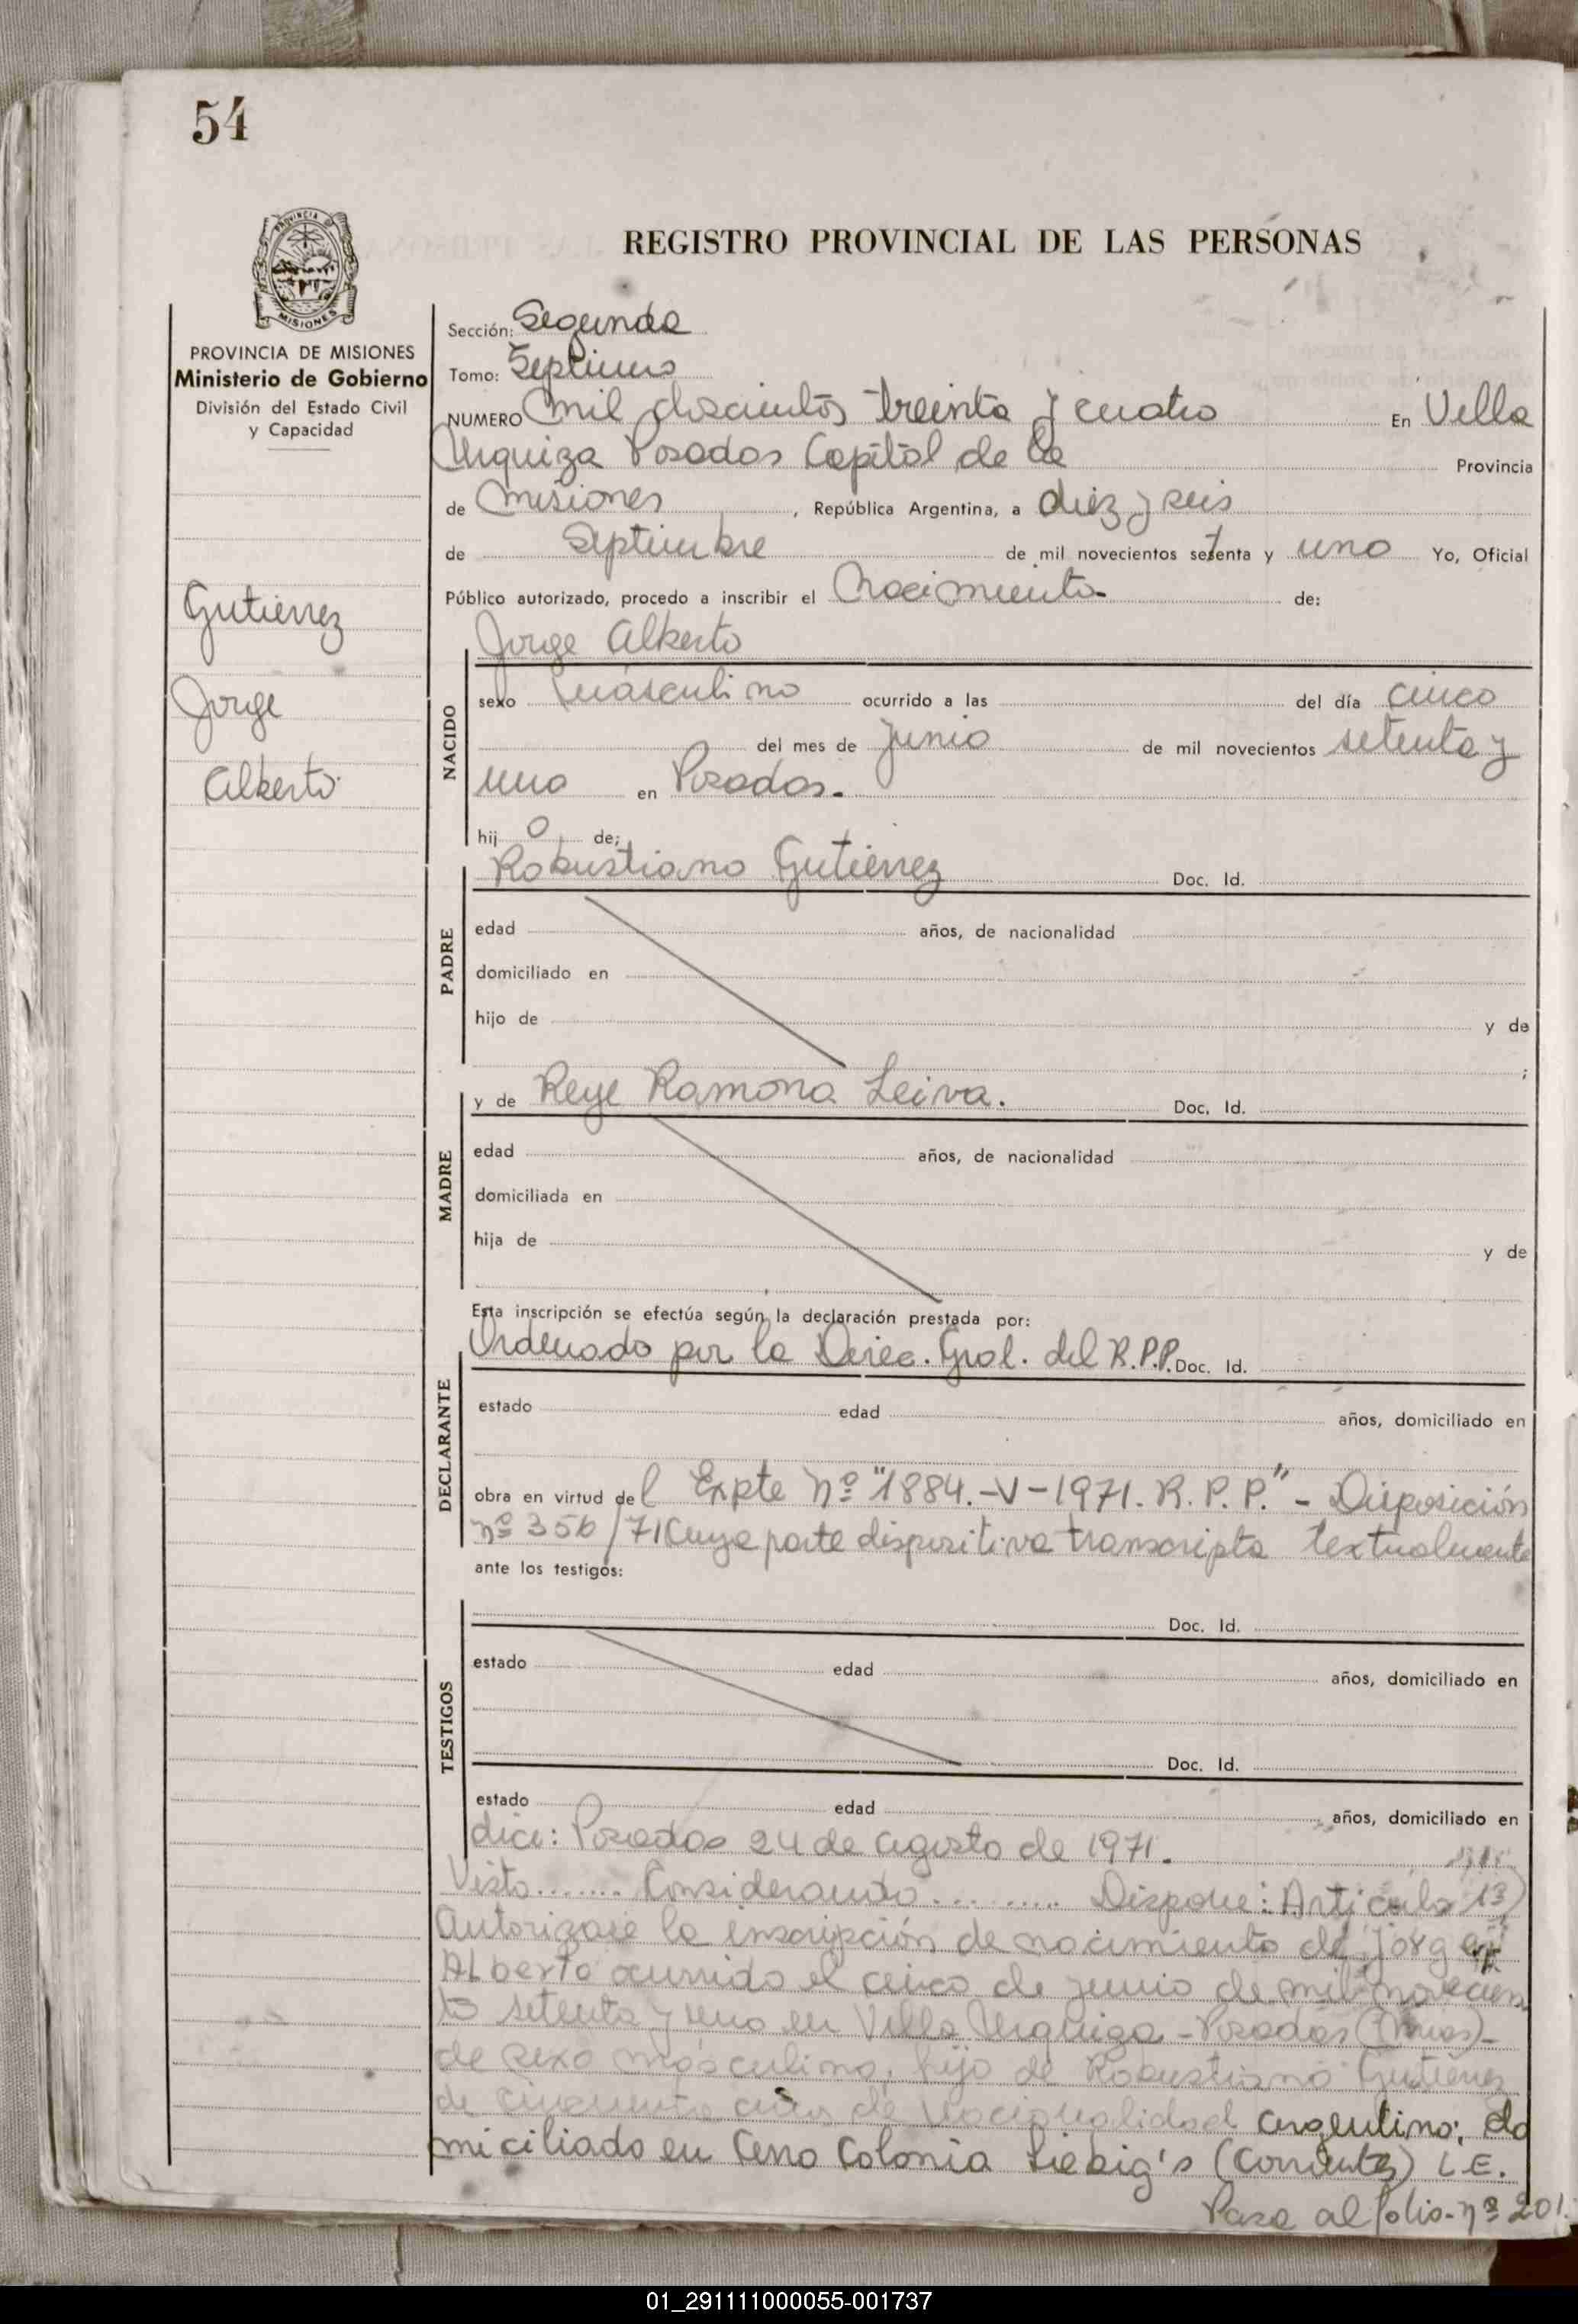 54
PROVINCIA DE
MISIONES
REGISTRO PROVINCIAL DE LAS PERSONAS
PROVINCIA DE MISIONES
Ministerio de Gobierno
División del Estado Civil
y Capacidad
Gutiérrez
Jorge
Alberto
Sección: Segunda
Tomo: Septimo
NUMERO mil doscientos treinta y cuatro En Villa
Urquiza Posadas Capital de la Provincia
de Misiones, República Argentina, a diez y seis
de Septiembre de mil novecientos setenta y uno Yo, Oficial
Público autorizado, procedo a inscribir el Nacimiento de:
Jorge Alberto
NACIDO
sexo Masculino ocurrido a las del día cinco
del mes de Junio de mil novecientos setenta y
uno en Posadas.
hij o de;
PADRE
Robustiano Gutiérrez Doc. Id.
edad años, de nacionalidad
domiciliado en
hijo de y de
;
MADRE
y de Reye Ramona Leiva. Doc. Id.
edad años, de nacionalidad
domiciliada en
hija de y de
Esta inscripción se efectúa según la declaración prestada por:
DECLARANTE
Ordenado por la Direc. Gral. del R.P.P. Doc. Id.
estado edad años, domiciliado en
obra en virtud del Expte Nº "1884.-V-1971. R. P. P." - Disposición
nº 356/71 Cuya parte dispositiva transcripta textualmente
ante los testigos:
TESTIGOS
Doc. Id.
estado edad años, domiciliado en
Doc. Id.
estado edad años, domiciliado en
dice: Posadas 24 de agosto de 1971.
Visto....... Considerando.......... Dispone: Articulo
Autorizase la inscripción de nacimiento de Jorge
Alberto ocurrido el cinco de junio de mil novecien
to setenta y uno en Villa Urquiza - Posadas (Mnes)-
de sexo másculino, hijo de Robustiano Gutiérrez
de cincuenta años de nacionalidad argentino; do
miciliado en Colonia Liebig's (Corrientes) L.E.
Pasa al folio nº 201.
01_291111000055-001737